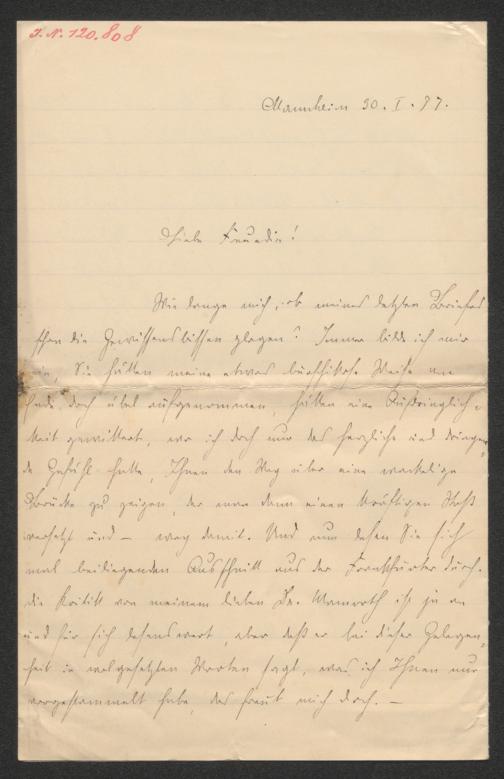 J. N. 120.808
Mannheim 30. I. 97.
Liebe Freundin!
Wie lange mich, ob meines letzten Briefes
schon die Gewissensbissen plagen? Immer bilde ich mir
ein, Sie hätten meine etwas burschikose Weise am
Ende doch übel aufgenommen, hätten eine Aufdringlich-
keit gewittert, wo ich doch nur das herzliche und dringen-
de Gefühl hatte, Ihnen den Weg über eine wackelige
Brücke zu zeigen, der man dann einen kräftigen Stoß
versetzt und – weg damit. Und nun lesen Sie sich
mal beiliegenden Ausschnitt aus der Frankfurter durch.
die Kritik von meinem lieben Dr. Mamroth ist ja an
und für sich lesenswert, aber daß er bei dieser Gelegen-
heit in wolgesetzten Worten sagt, was ich Ihnen nur
vorgestammelt habe, das freut mich doch. –